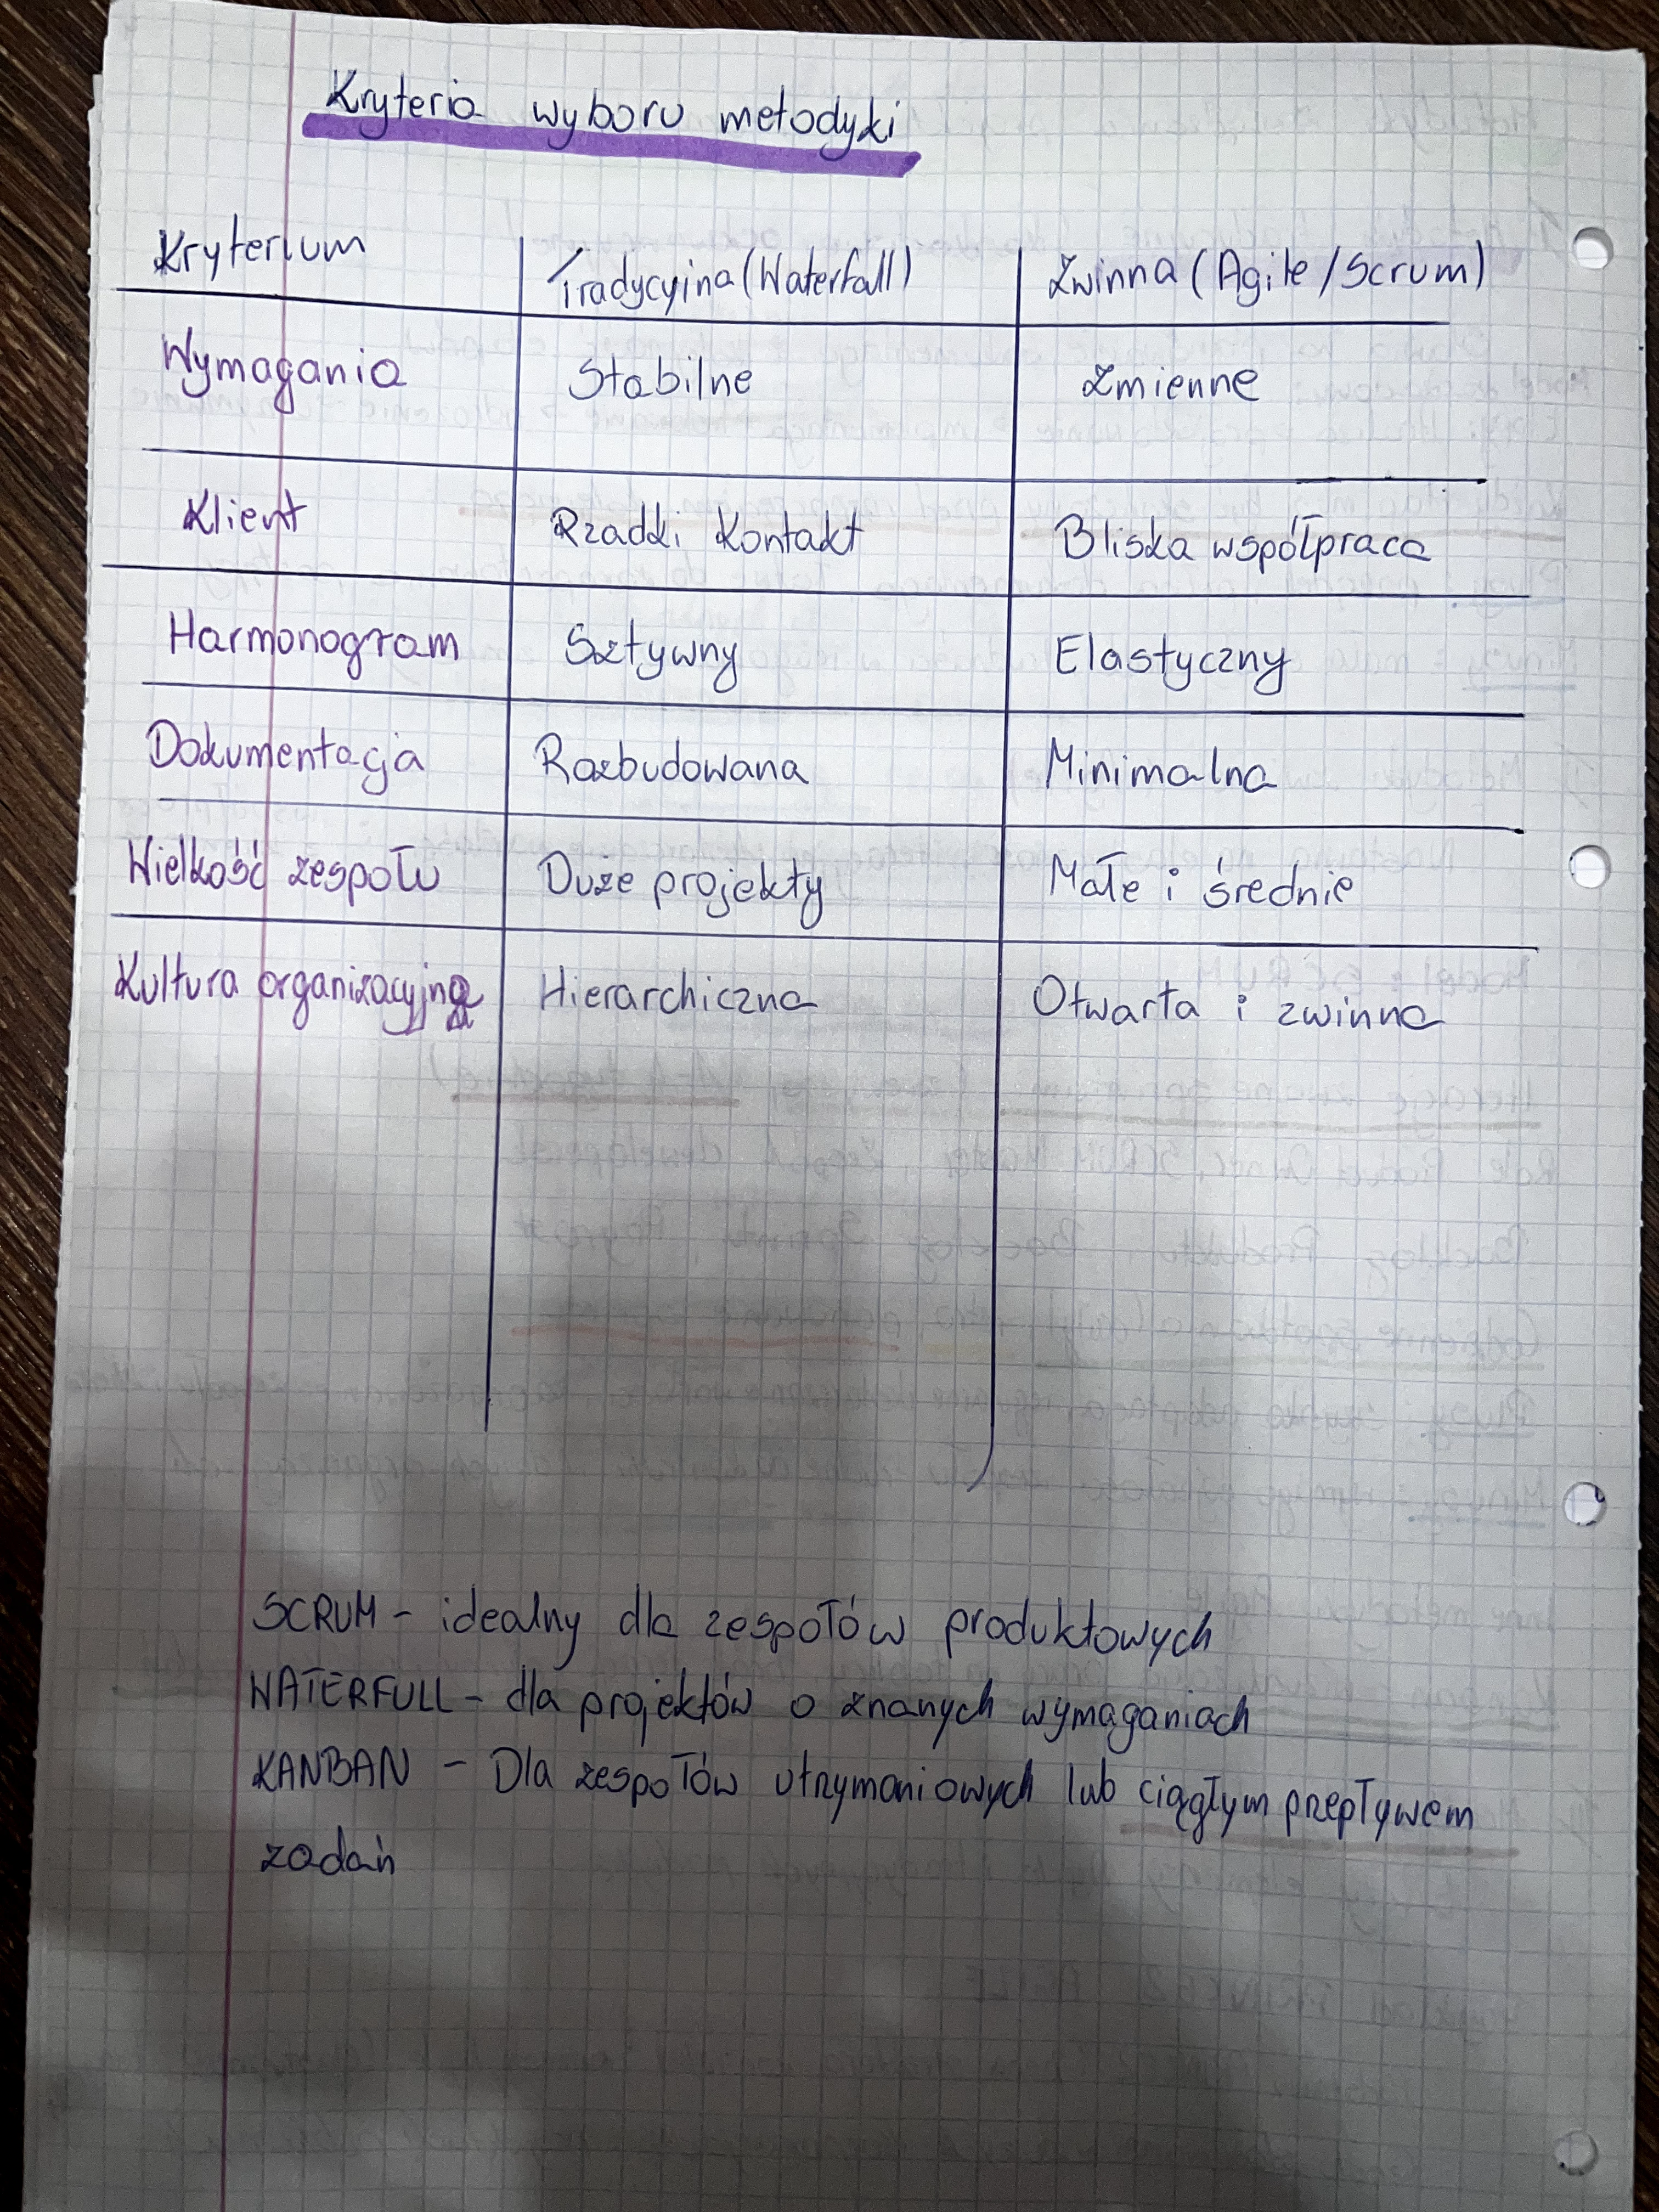 Kryteria wyboru metodyki
Kryterium Tradycyjna (Waterfall) Zwinna (Agile/Scrum)
Wymagania Stabilne Zmienne
Klient Rzadki Kontakt Bliska współpraca
Harmonogram Sztywny Elastyczny
Dokumentacja Rozbudowana Minimalna
Wielkość zespołu Duże projekty Małe i średnie
Kultura organizacyjna Hierarchiczna Otwarta i zwinna
SCRUM - idealny dla zespołów produktowych
WATERFULL - dla projektów o znanych wymaganiach
KANBAN - Dla zespołów utrzymaniowych lub ciągłym przepływem
zadań